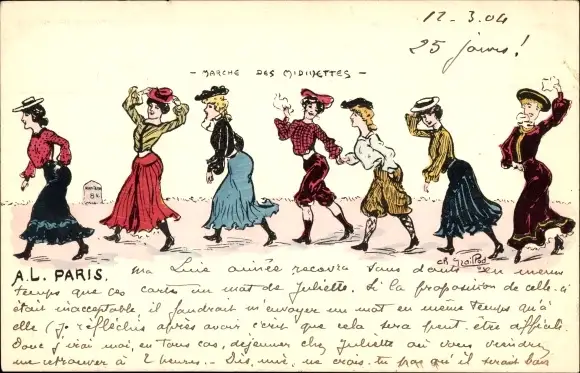 12-3.04
25 jours!
- MARCHE DES MIDINETTES -
A.L. PARIS.
ma Luie aimée recevra sans doute en même
temps que ces cartes un mot de Juliette. Si la proposition de celle-ci
était inacceptable, il faudrait m'envoyer un mot en même temps qu'à
elle (je réfléchis après avoir écrit que cela sera peut-être difficile.
Donc j'irai moi, en tous cas, déjeuner chez Juliette où vous viendrez
me retrouver à 2 heures. - Dis, mie, ne crois-tu pas qu'il serait bon